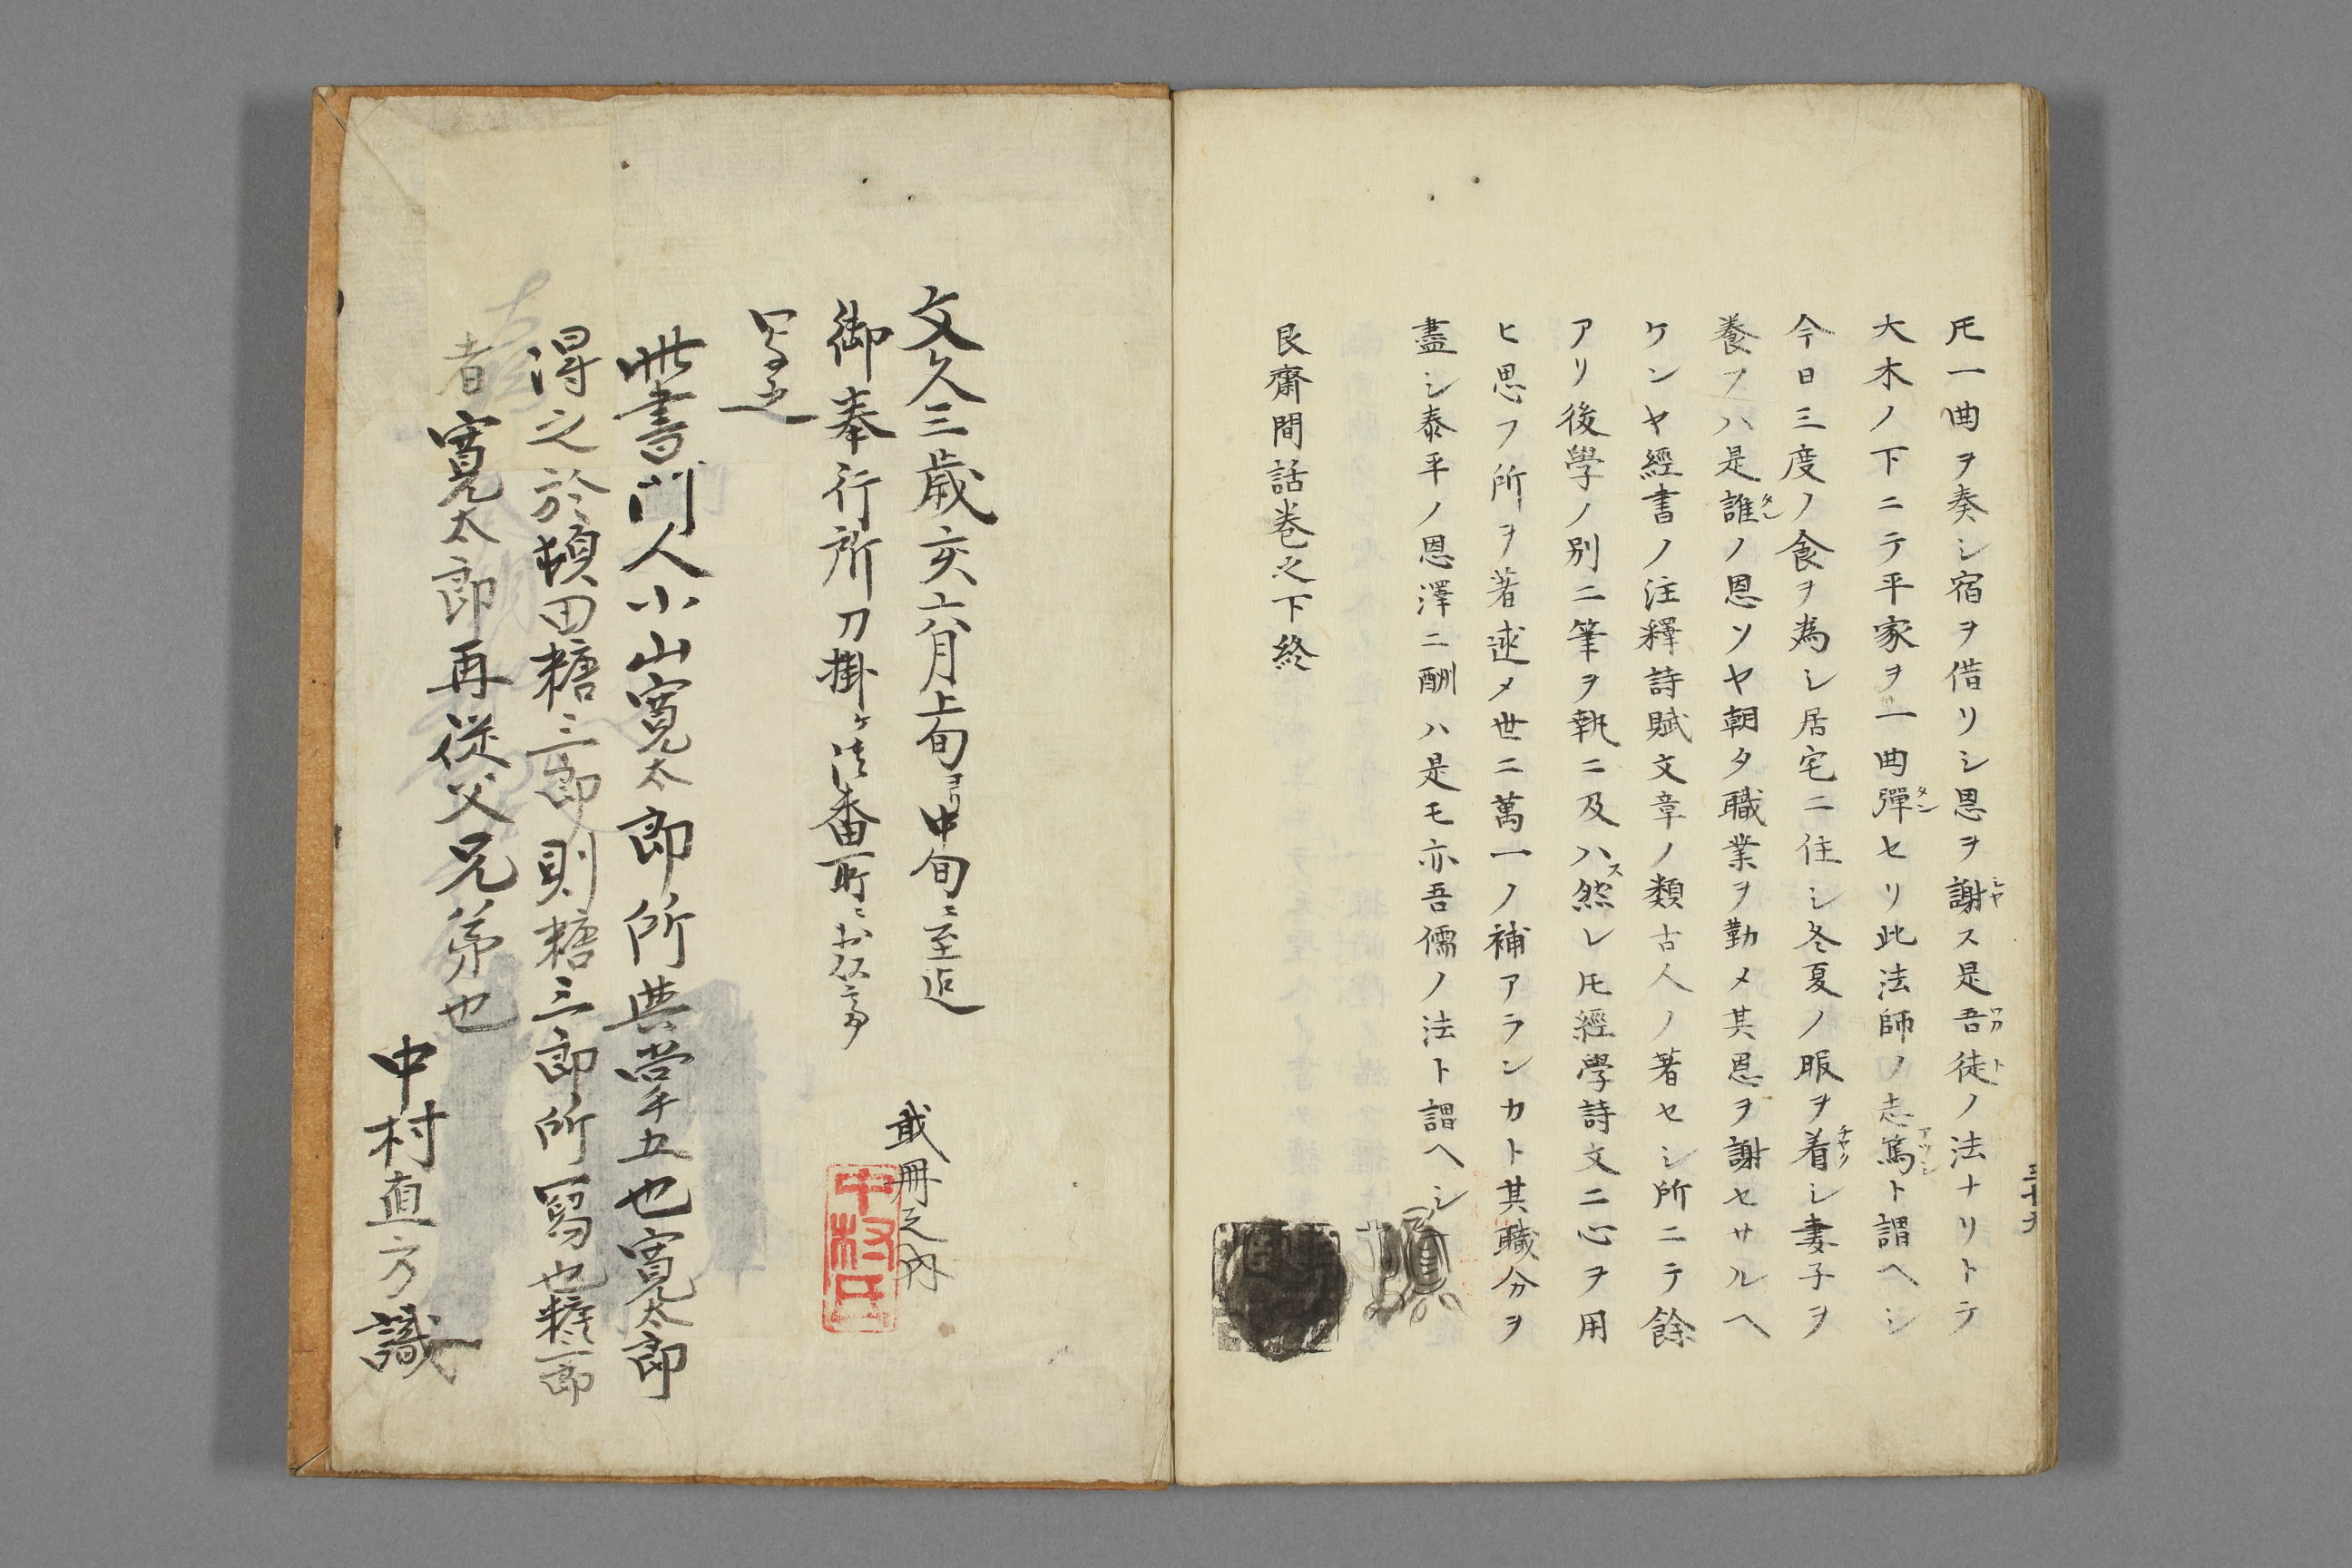 圧一曲ヲ奏シ宿ヲ借リシ恩ヲ謝ス是吾徒ノ法ナリトテ
大木ノ下ニテ平家ヲ一曲彈セリ此法師ノ志篤ト謂ヘシ
今日三度ノ食ヲ為シ居宅ニ住シ冬夏ノ服ヲ着シ妻子ヲ
養フハ是誰ノ恩ソヤ朝夕職業ヲ勤メ其恩ヲ謝セサルヘ
ケンヤ經書ノ注釋詩賦文章ノ類古人ノ著セシ所ニテ餘
アリ後學ノ別ニ筆ヲ執ニ及ハス然レ𪜈經學詩文ニ心ヲ用
ヒ思フ所ヲ著述メ世ニ萬一ノ補アランカト其職分ヲ
盡シ泰平ノ恩澤ニ酬ハ是モ亦吾儒ノ法ト謂ヘシ
艮齋間話巻之下終
文久三歳亥六月上旬ヨリ中旬ニ至迄
御奉行所刀掛ケ番所ニ
写之
貮冊之内
中村氏
此書門人小山寛太郎所典掌五也寛太郎
得之於頓田糖三郎則糖三郎所寫也糖三郎
者寛太郎再従父兄弟也
中村直方識